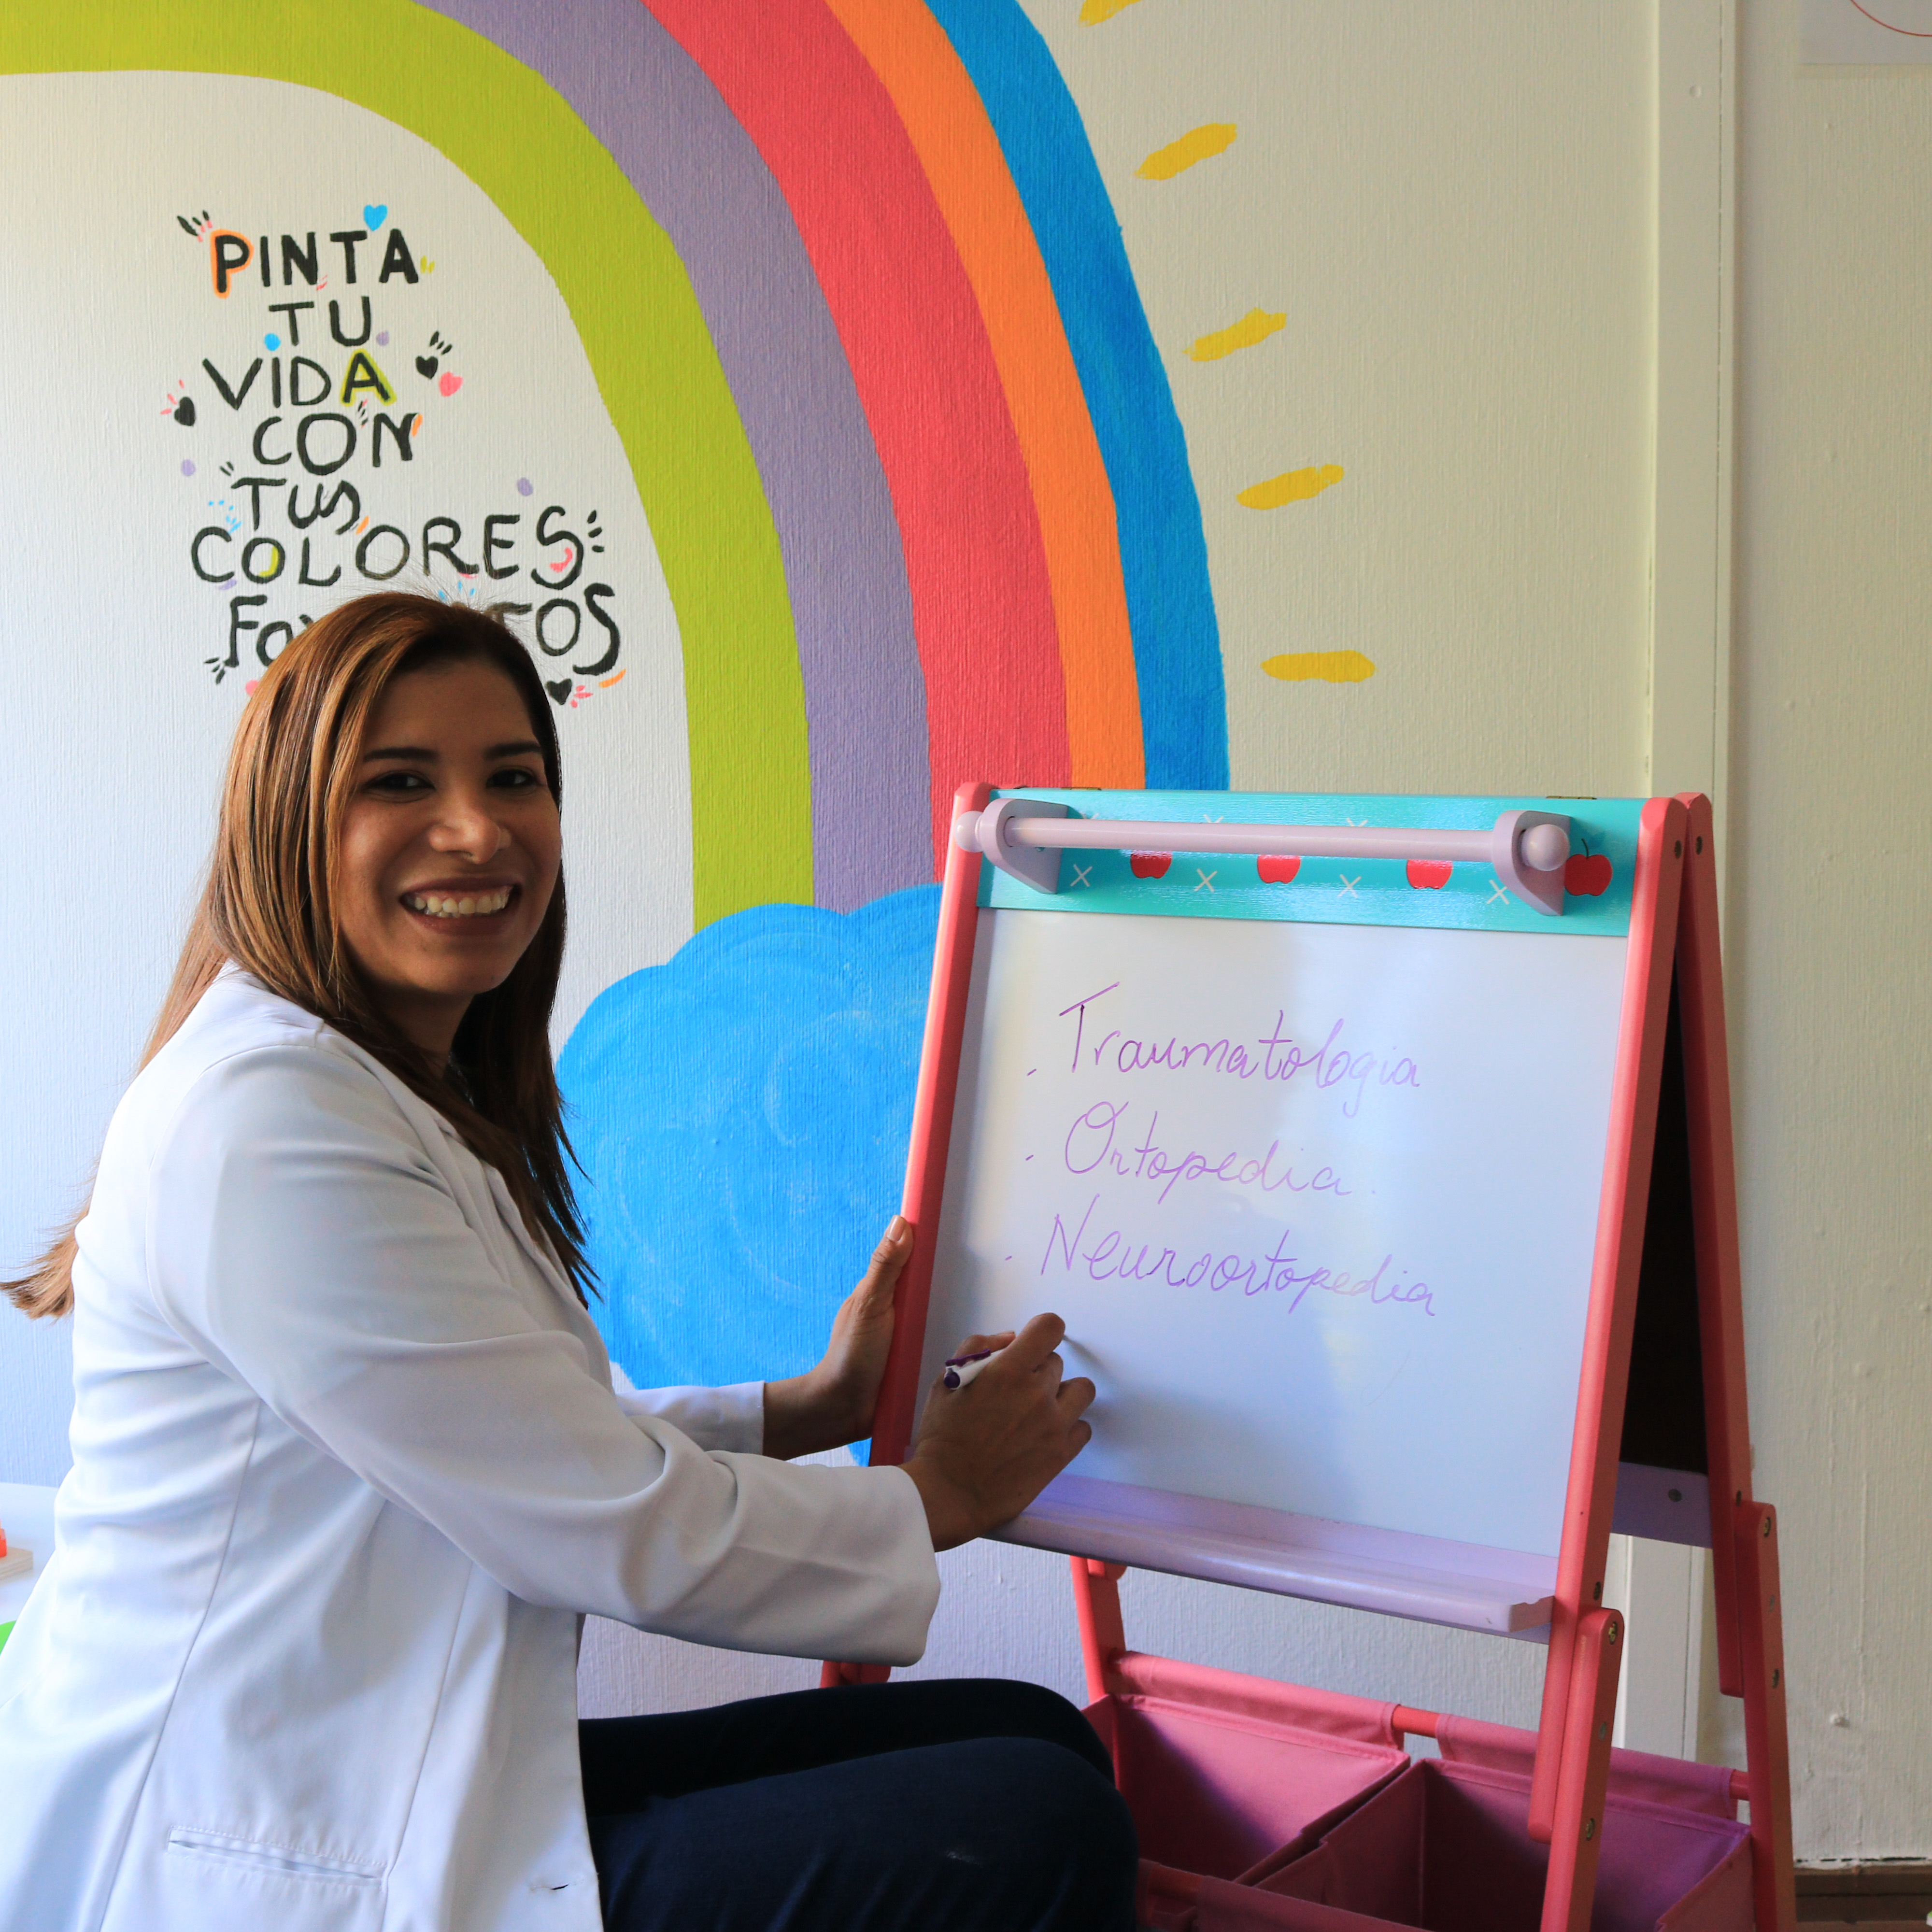 PINTA
TU
VIDA
CON
TUS
COLORES
- Traumatologia
- Ortopedia.
- Neuroortopedia